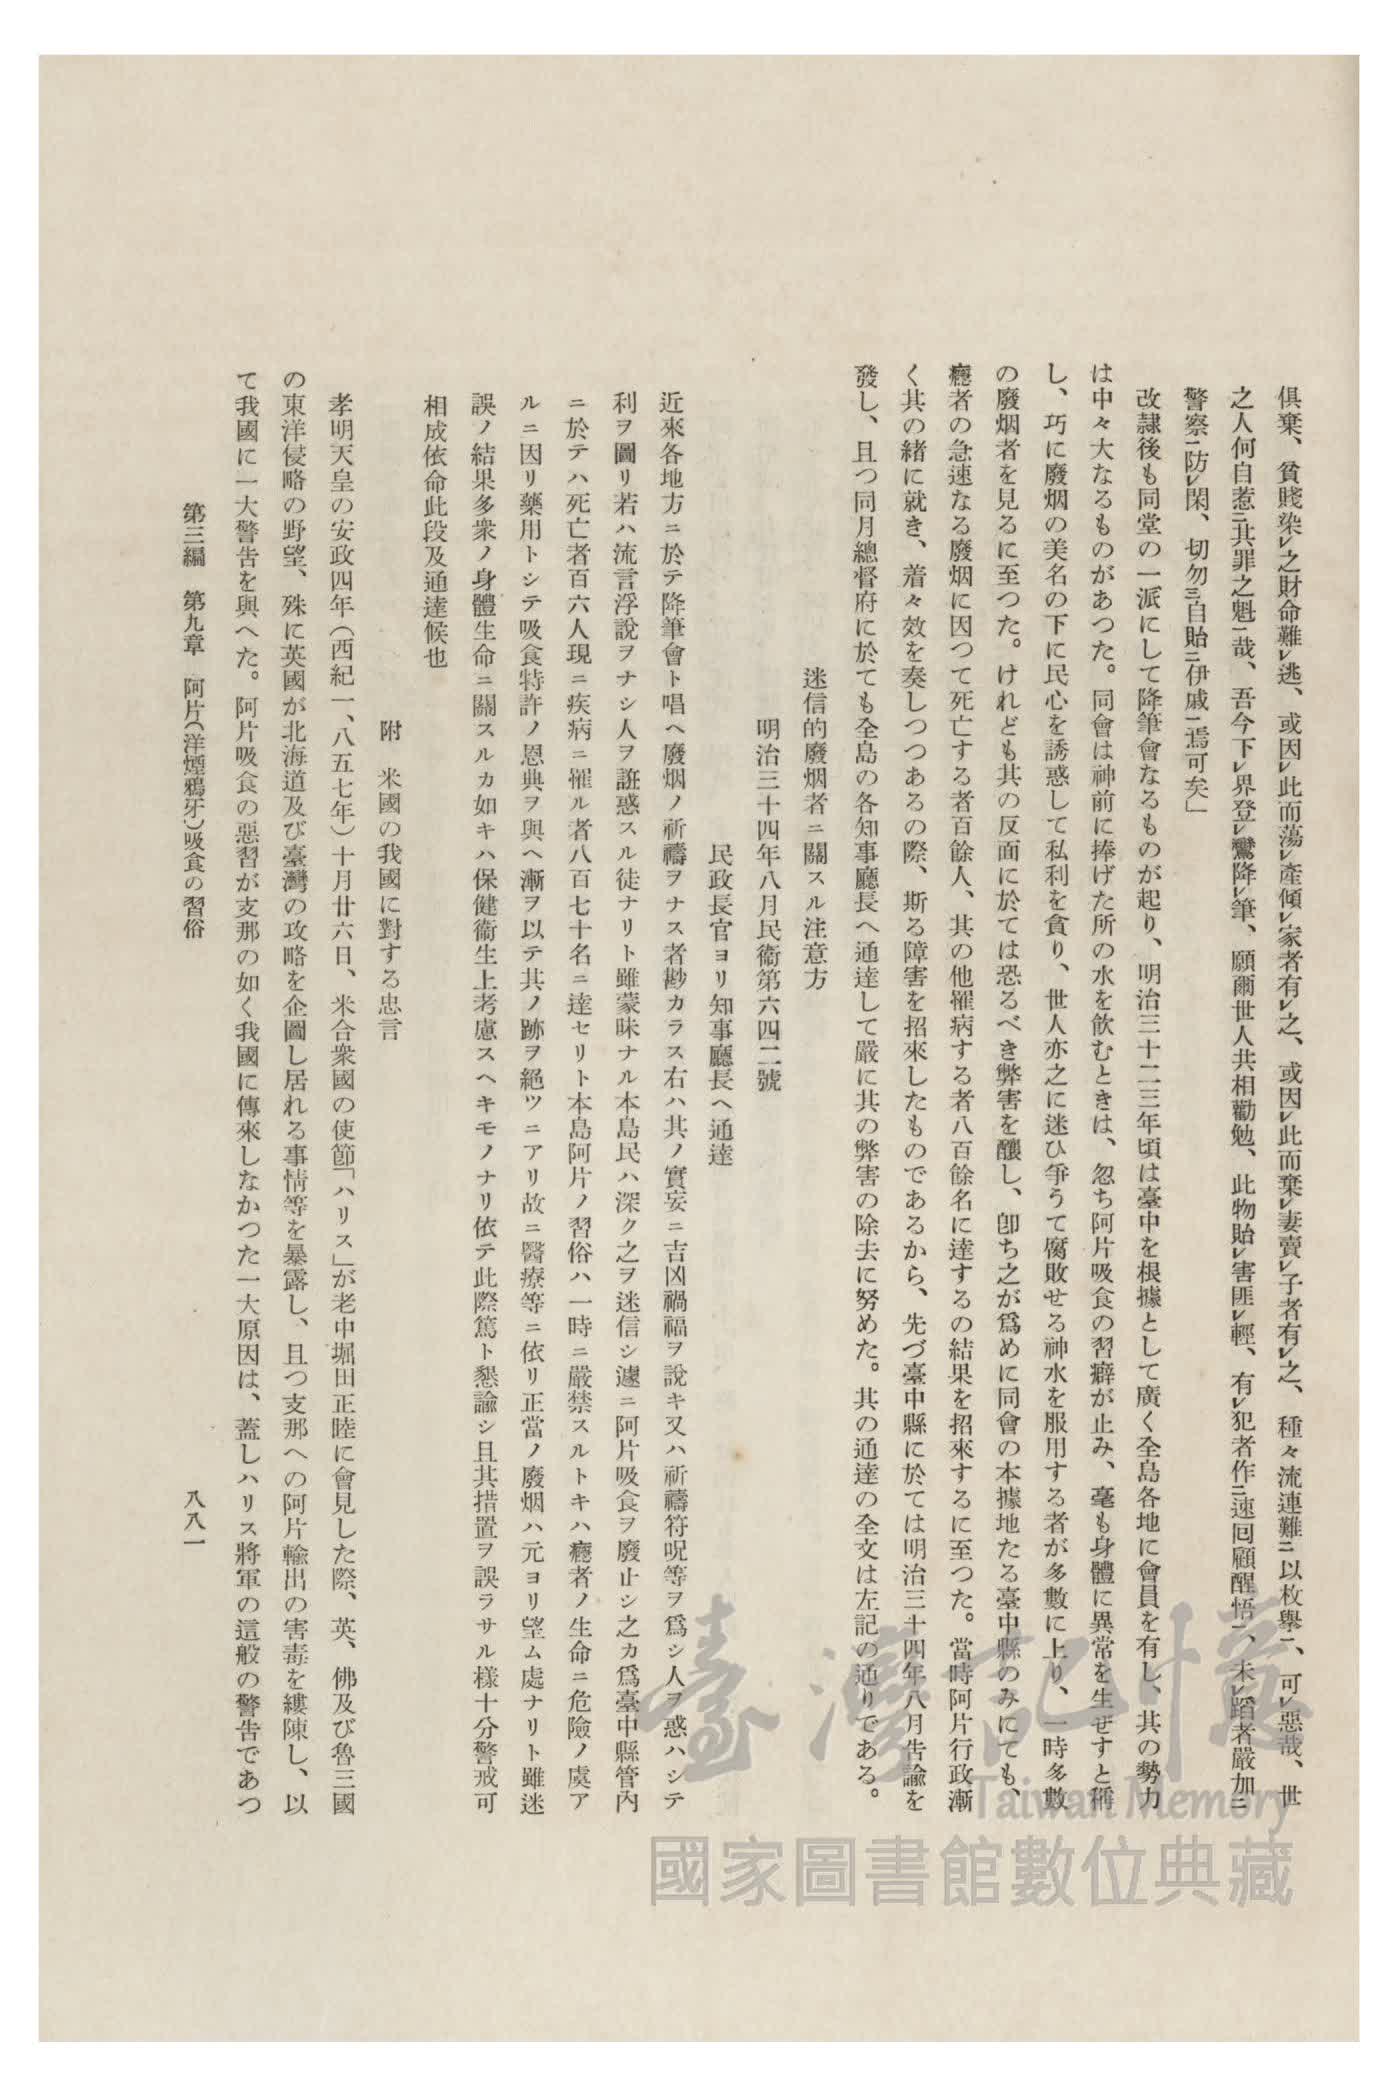 俱棄、貧賤染レ之財命難レ逃、或因レ此而蕩レ產傾レ家者有レ之、或因レ此而棄レ妻賣レ子者有レ之、種々流連難ニ以枚舉一、可レ惡哉、世
之人何自惹ニ其罪之魁一哉、吾今下レ界登レ鸞降レ筆、願爾世人共相勸勉、此物貽レ害匪レ輕、有レ犯者作ニ速囘顧醒悟一、未レ蹈者嚴加ニ
警察一防レ閑、切勿三自貽ニ伊戚一焉可矣」
改隷後も同堂の一派にして降筆會なるものが起り、明治三十二三年頃は臺中を根據として廣く全島各地に會員を有し、其の勢力
は中々大なるものがあつた。同會は神前に捧げた所の水を飮むときは、忽ち阿片吸食の習癖が止み、毫も身體に異常を生ぜすと稱
し、巧に廢烟の美名の下に民心を誘惑して私利を貪り、世人亦之に迷ひ爭うて腐敗せる神水を服用する者が多數に上り、一時多數
の廢烟者を見るに至つた。けれども其の反面に於ては恐るべき弊害を釀し、卽ち之が爲めに同會の本據地たる臺中縣のみにても、
癮者の急速なる廢烟に因つて死亡する者百餘人、其の他罹病する者八百餘名に達するの結果を招來するに至つた。當時阿片行政漸
く其の緒に就き、着々效を奏しつつあるの際、斯る障害を招來したものであるから、先づ臺中縣に於ては明治三十四年八月告諭を
發し、且つ同月總督府に於ても全島の各知事廳長へ通達して嚴に其の弊害の除去に努めた。其の通達の全文は左記の通りである。
迷信的廢烟者ニ關スル注意方
明治三十四年八月民衞第六四二號
民政長官ヨリ知事廳長へ通達
近來各地方ニ於テ降筆會ト唱へ廢烟ノ祈禱ヲナス者尠カラス右ハ其ノ實妄ニ吉凶禍福ヲ說キ又ハ祈禱符呪等ヲ爲シ人ヲ惑ハシテ
利ヲ圖リ若ハ流言浮說ヲナシ人ヲ誑惑スル徒ナリト雖蒙昧ナル本島民ハ深ク之ヲ迷信シ遽ニ阿片吸食ヲ廢止シ之カ爲臺中縣管內
ニ於テハ死亡者百六人現ニ疾病ニ罹ル者八百七十名ニ達セリト本島阿片ノ習俗ハ一時ニ嚴禁スルトキハ癮者ノ生命ニ危險ノ虞ア
ルニ因リ藥用トシテ吸食特許ノ恩典ヲ與へ漸ヲ以テ其ノ跡ヲ絕ツニアリ故ニ醫療等ニ依リ正當ノ廢烟ハ元ヨリ望ム處ナリト雖迷
誤ノ結果多衆ノ身體生命ニ關スルカ如キハ保健衞生上考慮スヘキモノナリ依テ此際篤ト懇諭シ且其措置ヲ誤ラサル樣十分警戒可
相成依命此段及通達候也
附　米國の我國に對する忠言
孝明天皇の安政四年（西紀一、八五七年）十月廿六日、米合衆國の使節「ハリス」が老中堀田正睦に會見した際、英、佛及び魯三國
の東洋侵略の野望、殊に英國が北海道及び臺灣の攻略を企圖し居れる事情等を暴露し、且つ支那への阿片輸出の害毒を縷陳し、以
て我國に一大警告を與へた。阿片吸食の惡習が支那の如く我國に傳來しなかつた一大原因は、蓋しハリス將軍の這般の警告であつ
第三編　第九章　阿片（洋煙鴉牙）吸食の習俗
八八一
臺灣記憶
Taiwan Memory
國家圖書館數位典藏